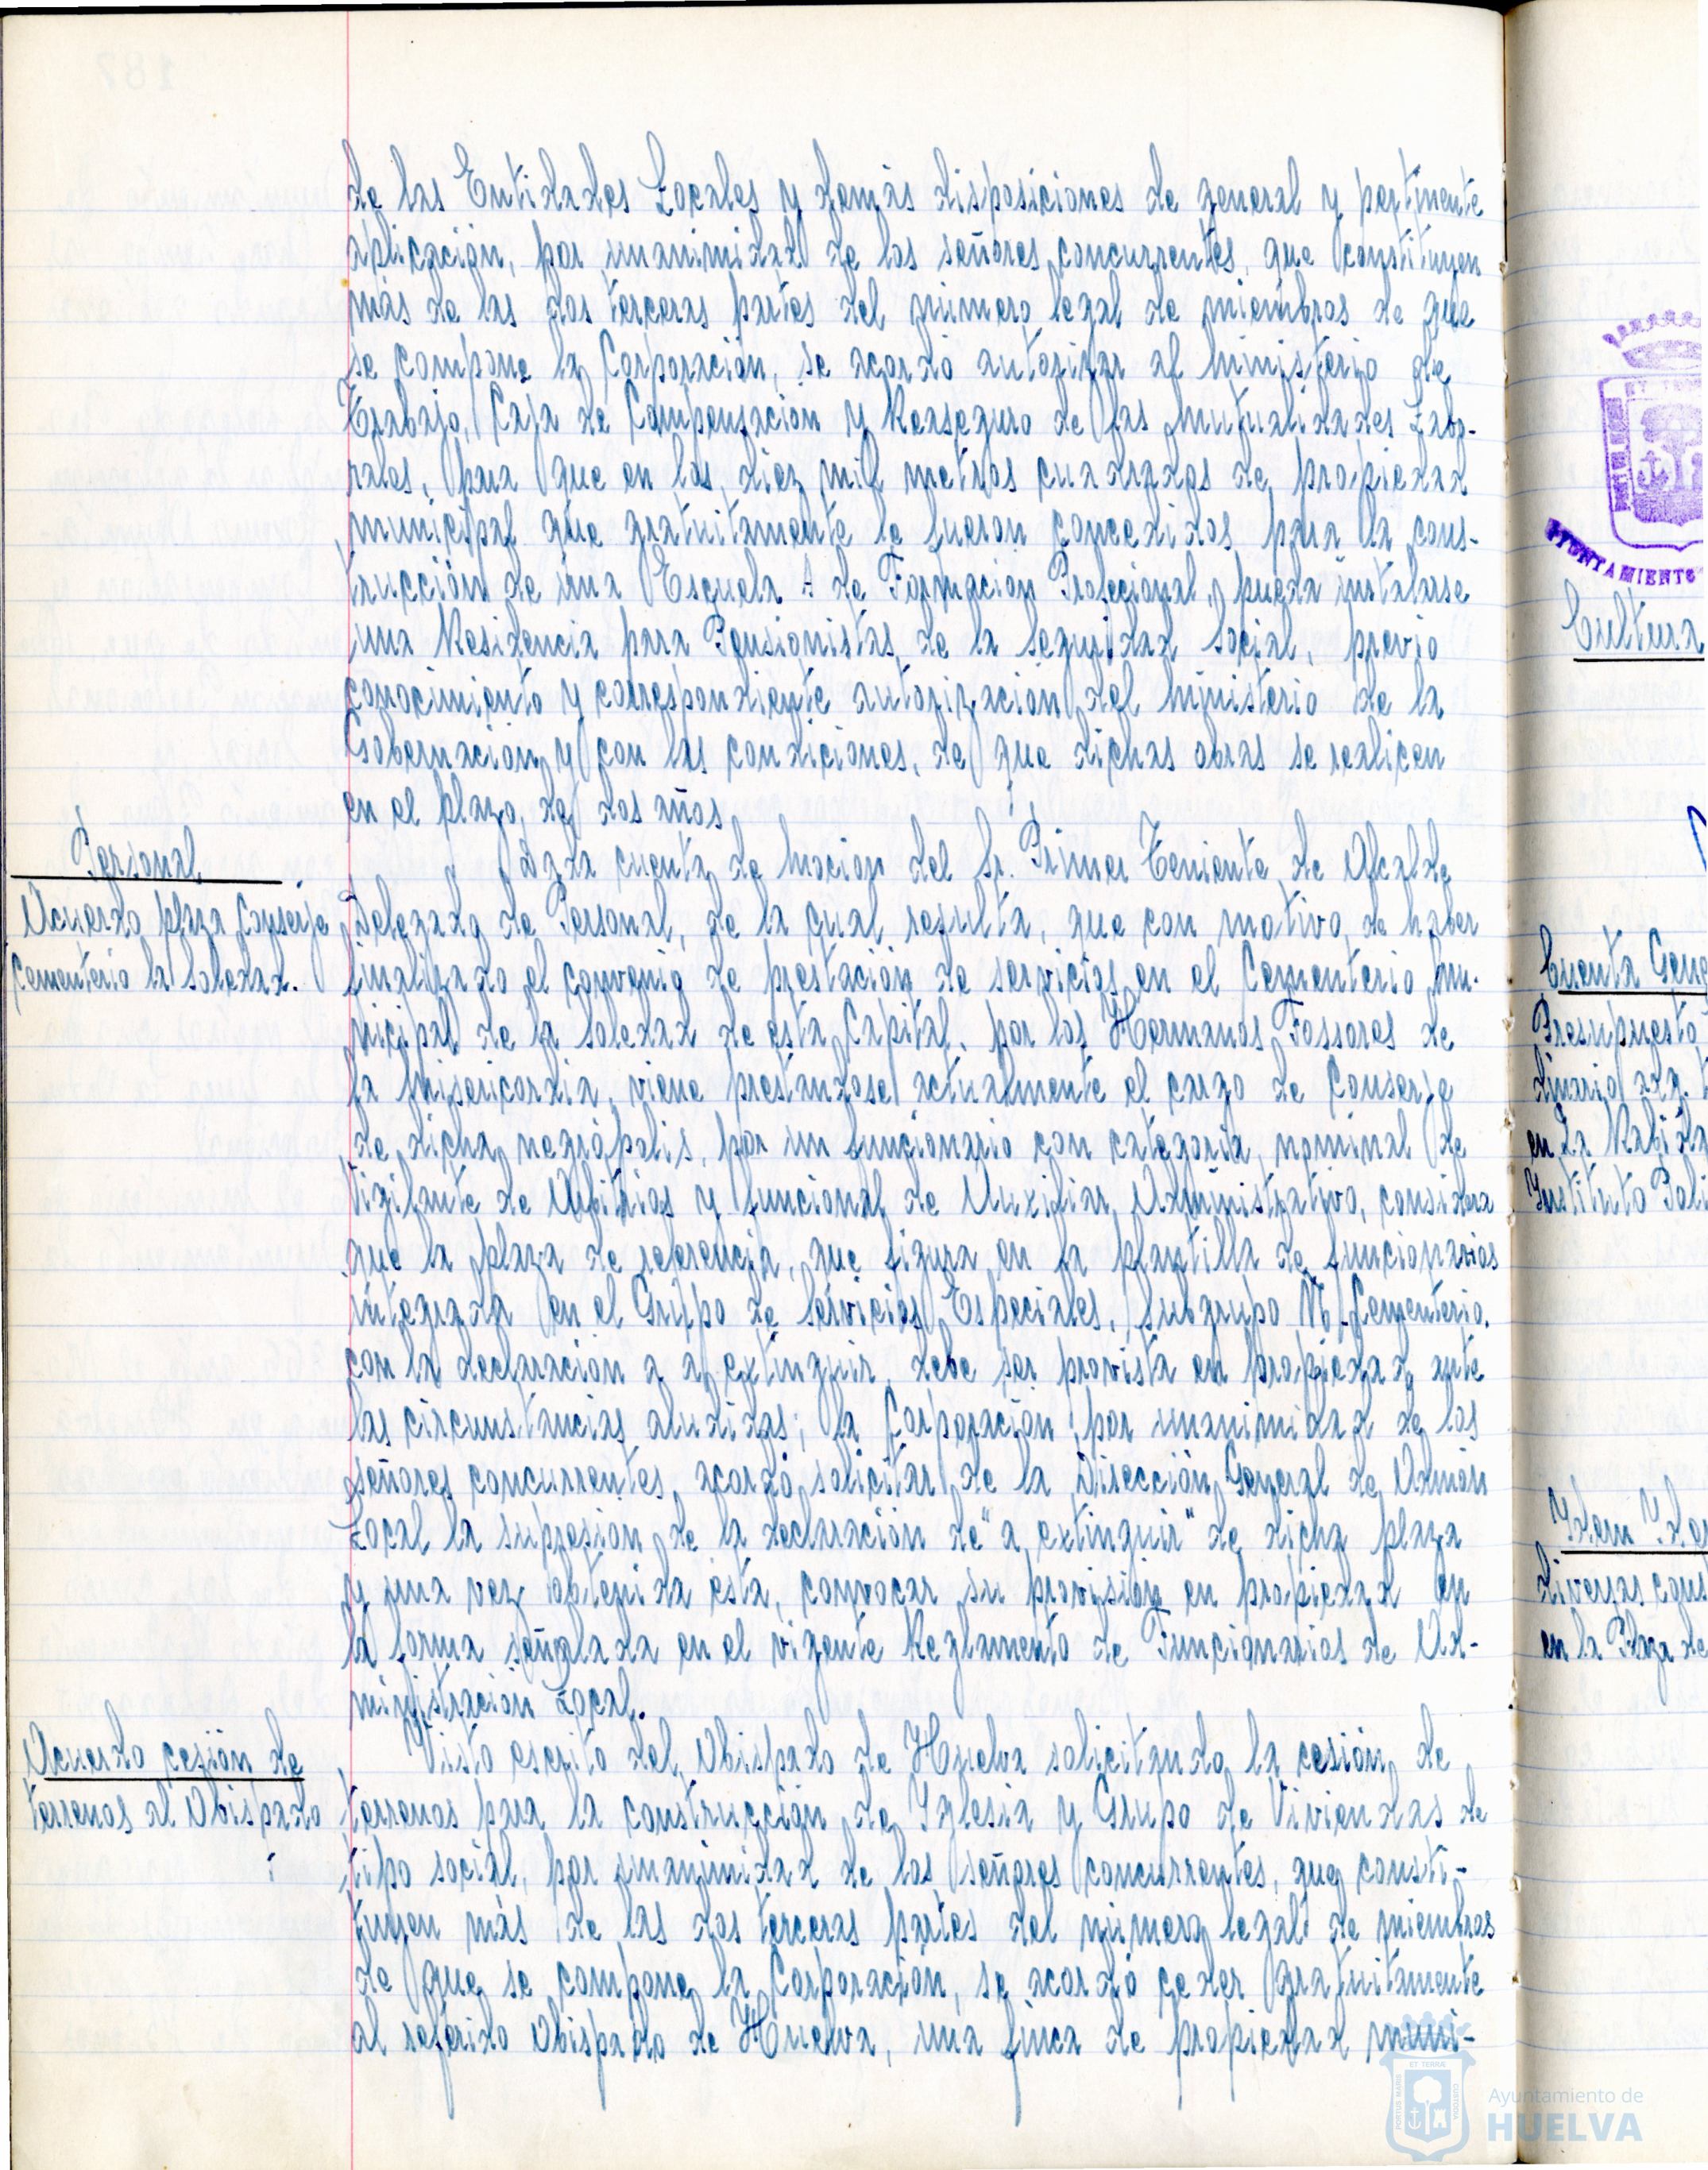 de las Entidades Locales y demás disposiciones de general y pertinente
aplicación, por unanimidad de los señores concurrentes, que constituyen
más de las dos terceras partes del número legal de miembros de que
se compone la Corporación, se acordó autorizar al Ministerio de
Trabajo, Caja de Compensación y Reaseguro de las Mutualidades Labo-
rales, para que en los diez mil metros cuadrados de propiedad
municipal que gratuitamente le fueron concedidos para la cons-
trucción de una Escuela A de Formación Profecional, pueda instalarse
una Residencia para Pensionistas de la Seguridad Social, previo
conocimiento y correspondiente autorización del Ministerio de la
Gobernación y con las condiciones, de que dichas obras se realicen
en el plazo, de dos años
Personal
Acuerdo plaza Conserje
Cementerio la Soledad.
Dada cuenta de Moción del Sr. Primer Teniente de Alcalde
Delegado de Personal, de la cual resulta, que con motivo de haber
finalizado el convenio de prestación de servicios en el Cementerio Mu-
nicipal de la Soledad de esta Capital, por los Hermanos Fossores de
la Misericordia, viene prestandose actualmente el cargo de Conserje
de dicha necrópolis, por un funcionario con categoria nominal de
Vigilante de Arbitrios y funcional de Auxiliar Administrativo, considera
que la plaza de referencia, que figura en la plantilla de funcionarios
integrada en el Grupo de Servicios Especiales, Subgrupo M/ Cementerio,
con la declaración a a extinguir, debe ser provista en propiedad ante
las circunstancias aludidas; la Corporación, por unanimidad de los
señores concurrentes, acordó solicitar de la Dirección General de Admón
Local la supresión de la declaración de "a extinguir" de dicha plaza
y una vez obtenida ésta, convocar su provisión en propiedad en
la forma señalada en el vigente Reglamento de Funcionarios de Ad-
ministración Local.
Acuerdo cesión de
terrenos al Obispado
Visto escrito del Obispado de Huelva solicitando la cesión de
terrenos para la construcción de Iglesia y Grupo de Viviendas de
tipo social, por unanimidad de los señores concurrentes, que consti-
tuyen más de las dos terceras partes del número legal de miembros
de que se compone la Corporación, se acordó ceder gratuitamente
al referido Obispado de Huelva, una finca de propiedad muni-
Cultura
Cuenta Gene
Presupuesto
en La Rabida
Instituto Poli
Idem Idem
diversas cons
en la Plaza de
Ayuntamiento de
HUELVA